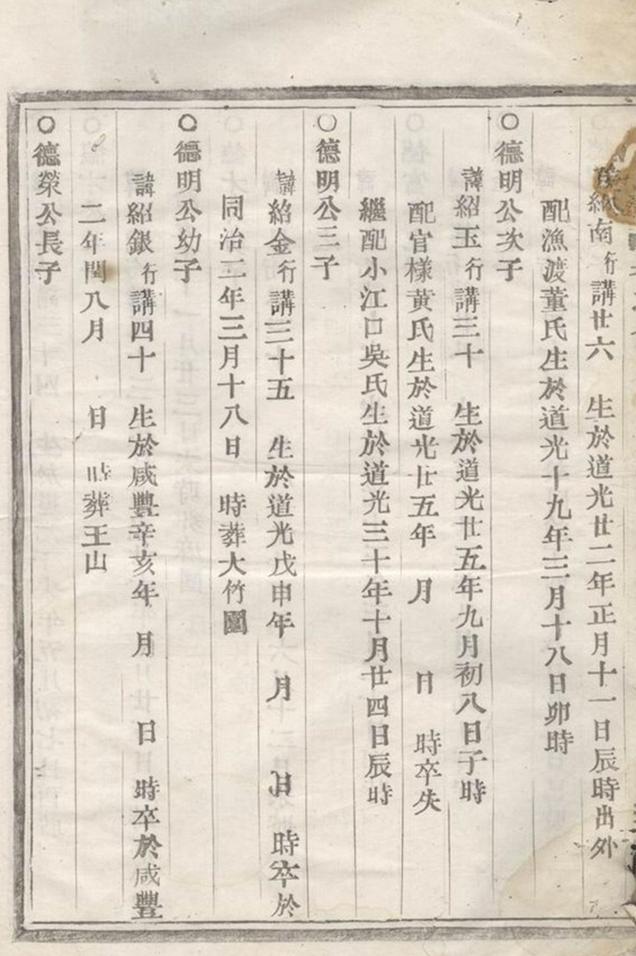 諱紹南行講廿六 生於道光廿二年正月十一日辰時出外
配漁渡董氏生於道光十九年三月十八日卯時
○德明公次子
諱紹玉行講三十 生於道光廿五年九月初八日子時
配官樣黃氏生於道光廿五年 月 日 時卒失
繼配小江口吳氏生於道光三十年十月廿四日辰時
○德明公三子
諱紹金行講三十五 生於道光戊申年 月 日 時卒於
同治二年三月十八日 時葬大竹園
○德明公幼子
諱紹銀行講四十 生於咸豐辛亥年 月 日 時卒於咸豐
二年閏八月 日 時葬王山
○德榮公長子